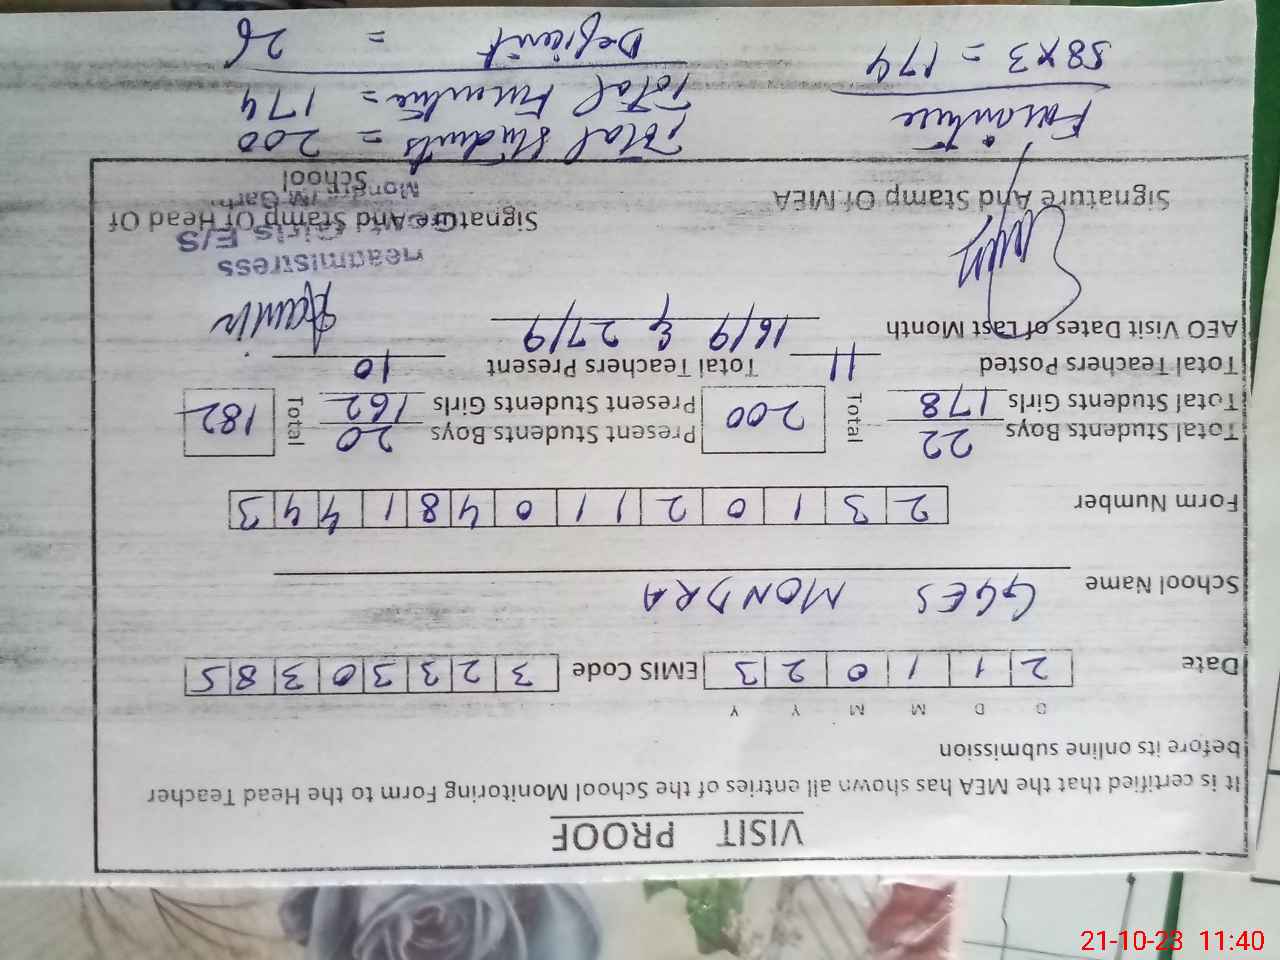 VISIT PROOF
It is certified that the MEA has shown all entries of the School Monitoring Form to the Head Teacher
before its online submission
D D M M Y Y
Date 2 1 1 0 2 3 EMIS Code 3 2 3 3 0 3 8 5
School Name GGES MONDRA
Form Number 2 3 1 0 2 1 1 0 4 8 1 4 4 3
Total Students Boys 22 Total 200 Present Students Boys 20 Total 182
Total Students Girls 178 Present Students Girls 162
Total Teachers Posted 11 Total Teachers Present 10
AEO Visit Dates of Last Month 16/9 & 27/9
Headmistress
Girls E/S
Signature And Stamp Of MEA Signature And Stamp Of Head Of
School
Furniture Total Students = 200
58x3 = 174 Total Furniture = 174
Deficient = 26
21-10-23 11:40